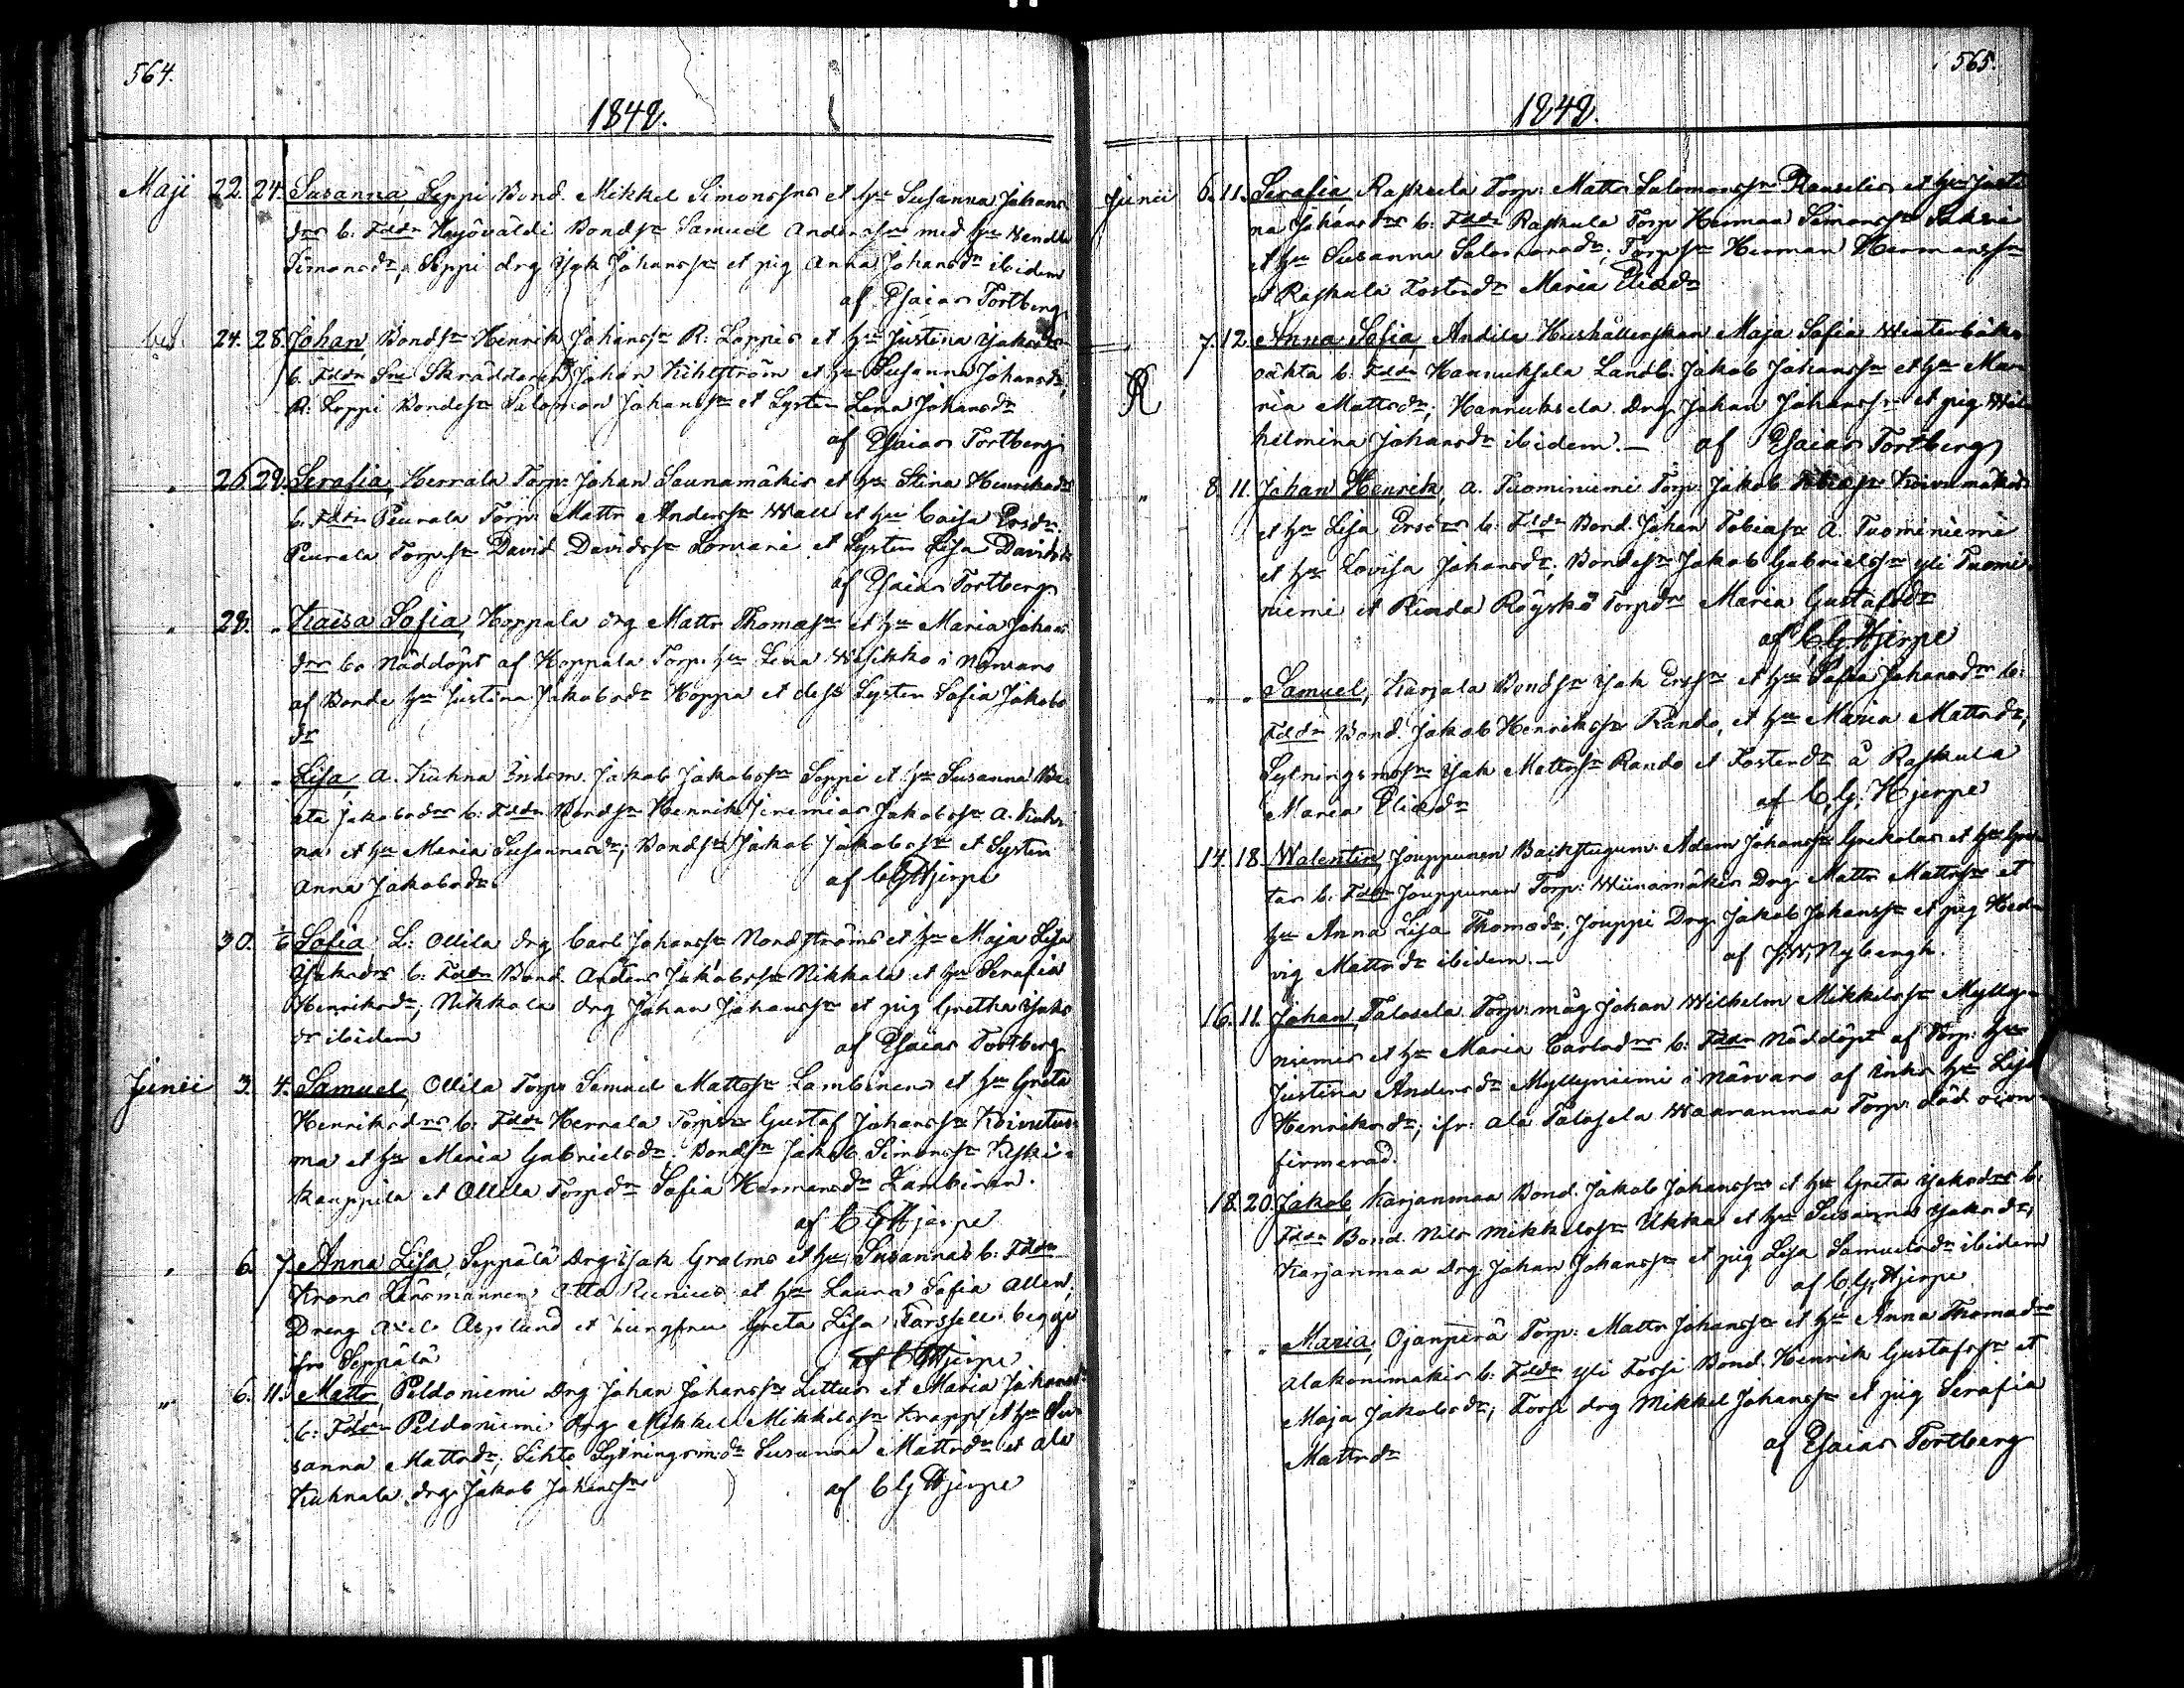 564.
1848.
Maji 22. 24. Susanna, Seppi Bond. Mikkel Simonssns et hu Susanna Johans
drs b: Fddr Hyöväldi Bondsn Samuel Anderssn med hu Wendla
Simonsdr; Seppi drg Isak Johanssn et pig Anna Johansdr ibidem
af Esaias Tortberg
24. 28. Johan, Bondsn Henrik Johanssn R: Loppis et hu Justina Isaksdrs
b. Fddr Skräddaren Johan Kihlström et hu Susanna Johansdr,
R: Loppi Bondesn Salomon Johanssn et Systern Lena Johansdr
af Esaias Tortberg
" 26. 28. Serafia, Herrala Torp: Johan Saunamäkis et hu Stina Henriksdrs
b. Fddr Peurala Torp: Matts Anderssn Wall et hu Caisa Ersdr.
Peurala Torpsn David Davidssn Lorvari et Systern Lisa Davidsdr
af Esaias Tortberg
" 28. " Kaisa Sofia, Hoppala drg Matts Thomassn et hu Maria Johans
drs b. Nöddöpt af Hoppala Torp. hu Lena Wesikko i närvaro
af Bonde hu Justina Jakobsdr Hoppa et dess Systern Sofia Jakobs
dr
" " " Lisa, A. Kuhna Inhsm. Jakob Jakobssn Seppi et hu Susanna Be-
ata Jakobsdrs b: Fddr Bondsn Henrik Jeremias Jakobssn A. Kuh-
na et hu Maria Susannasdr; Bondsn Jakob Jakobssn et Systern
Anna Jakobsdr af C G Hjerpe
30. Sofia L: Ollila drg Carl Johanssn Nordströms et hu Maja Lisa
Isaksdrs b: Fddr Bond. Anders Jakobssn Nikkola et hu Serafia
Henriksdr; Nikkola drg Johan Johanssn et pig Gretha Isaks
dr ibidem af Esaias Tortberg
Junii 3. 4. Samuel, Ollila Torp Samuel Mattssn Lambinens et hu Greta
Henriksdrs b: Fddr Herrala Torpsn Gustaf Johanssn Koivutus-
ma et hu Maria Gabrielsdr. Bondsn Jakob Simonssn Keski-
kauppila et Ollila Torpdr Sofia Hermansdr Lambinen.
af C G Hjerpe
" 6. 7. Anna Lisa, Seppälä Drg Isak Gralms et hu Susannas b: Fddr
Krono Länsmannen Otto Reinius et hu Laura Sofia Allén;
Dreng Axel Asplund et Jungfru Greta Lisa Forssell begge
ifrn Seppälä af C G Hjerpe
" 6. 11. Matts, Peldoniemi Drg Johan Johanssn Littus et Maria Johansdr
b: Fddr Peldoniemi drg Mikkel Mikkelssn Krapp et hu Su-
sanna Mattsdr; Sihto Sytningsm:dr Susanna Mattsdr et Ala
Kuhnala drg Jakob Johanssn af C G Hjerpe
565.
1848.
Junii 6. 11. Serafia, Raskula Torp: Matts Salomonssn et hu Justi
na Johansdrs b: Fddr Raskula Torp Herman Simonssn
et hu Susanna Salomonsdr, Torpsn Herman Hermanssn
et Raskula Fosterdr Maria Eliædr
" 7. 12. Anna Sofia, Andila Hushållerskan Maja Sofia Winterbäks
oäkta b: Fddr Hannuksela Landb. Jakob Johanssn et hu Ma-
R ria Mattsdr; Hannuksela Drg Johan Johanssn et pig Wil-
helmina Johansdr ibidem.— af Esaias Tortberg
" 8. 11. Johan Henrik, A. Tuominiemi Torp: Jakob Koivumäkis
et hu Lisa Ersdrs b: Fddr Bond. Johan Tobiassn A. Tuominiemi
et hu Lovisa Johansdr; Bondesn Jakob Gabrielssn yli Tuomi-
niemi et Rinda Röyskö Torpdr Maria Gustafsdr
af C G Hjerpe
" " Samuel, Karjala Bondsn Isak Erssn et hu Sofia Johansdrs b:
Fddr Bond. Jakob Henrikssn Rando, et hu Maria Mattsdr;
Sytningsmssn Isak Mattssn Rando et Fosterdr å Raskula
Maria Eliædr af C. G. Hjerpe
14. 18. Walentin, Jouppunen Backstugum. Adam Johanssn Grekolas et hu Gre-
tas b: Fddr Jouppunen Torp: Wiinamäkis Drg Matts Mattssn et
hu Anna Lisa Thomædr; Jouppi Drg Jakob Johanssn et pig Hed-
vig Mattsdr ibidem.— af J. W. Nybergh.
16. 11. Johan, Talosela Torp: måg Johan Wilhelm Mikkelssn Mylly-
niemis et hu Maria Carlsdrs b: Fddr Nöddöpt af Torp. hu
Justina Andersdr Myllyniemi i närvaro af Enko hu Lisa
Henriksdr; ifr: Ala Talosela Waaranmaa Torp: död ocon-
firmerad.
18. 20. Jakob, Karjanmaa Bond. Jakob Johanssns et hu Greta Isaksdrs b:
Fddr Bond. Nils Mikkelssn Ukka et hu Susanna Isaksdr;
Karjanmaa Drg Johan Johanssn et pig Lisa Samuelsdr ibidem
af C. G. Hjerpe
" " Maria, Ojanperä Torp: Matts Johanssn et hu Anna Thomædrs
Alakonimäkis b: Fddr yli Torsi Bond. Henrik Gustafssn et
Maja Jakobsdr; Torsi drg Mikkel Johanssn et pig Serafia
Mattsdr af Esaias Tortberg